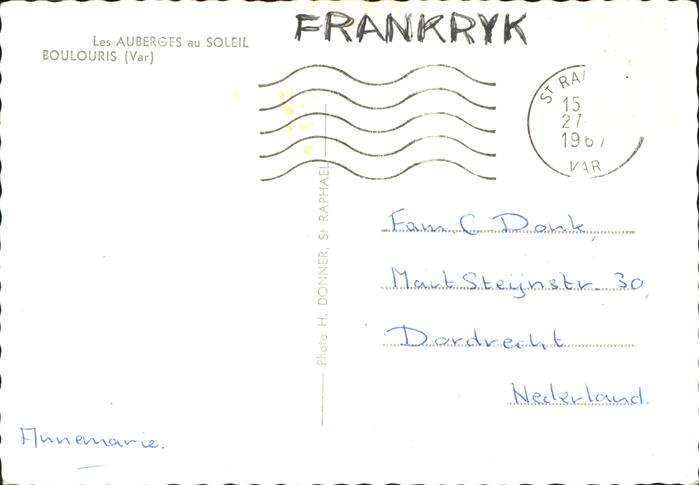 FRANKRYK
Les AUBERGES au SOLEIL
BOULOURIS (Var)
St RA
15
27
196
VAR
Photo H. DONNER, St RAPHAEL
Fam. C Donk,
Mart Steijnstr. 30
Dordrecht
Nederland.
Annemarie.